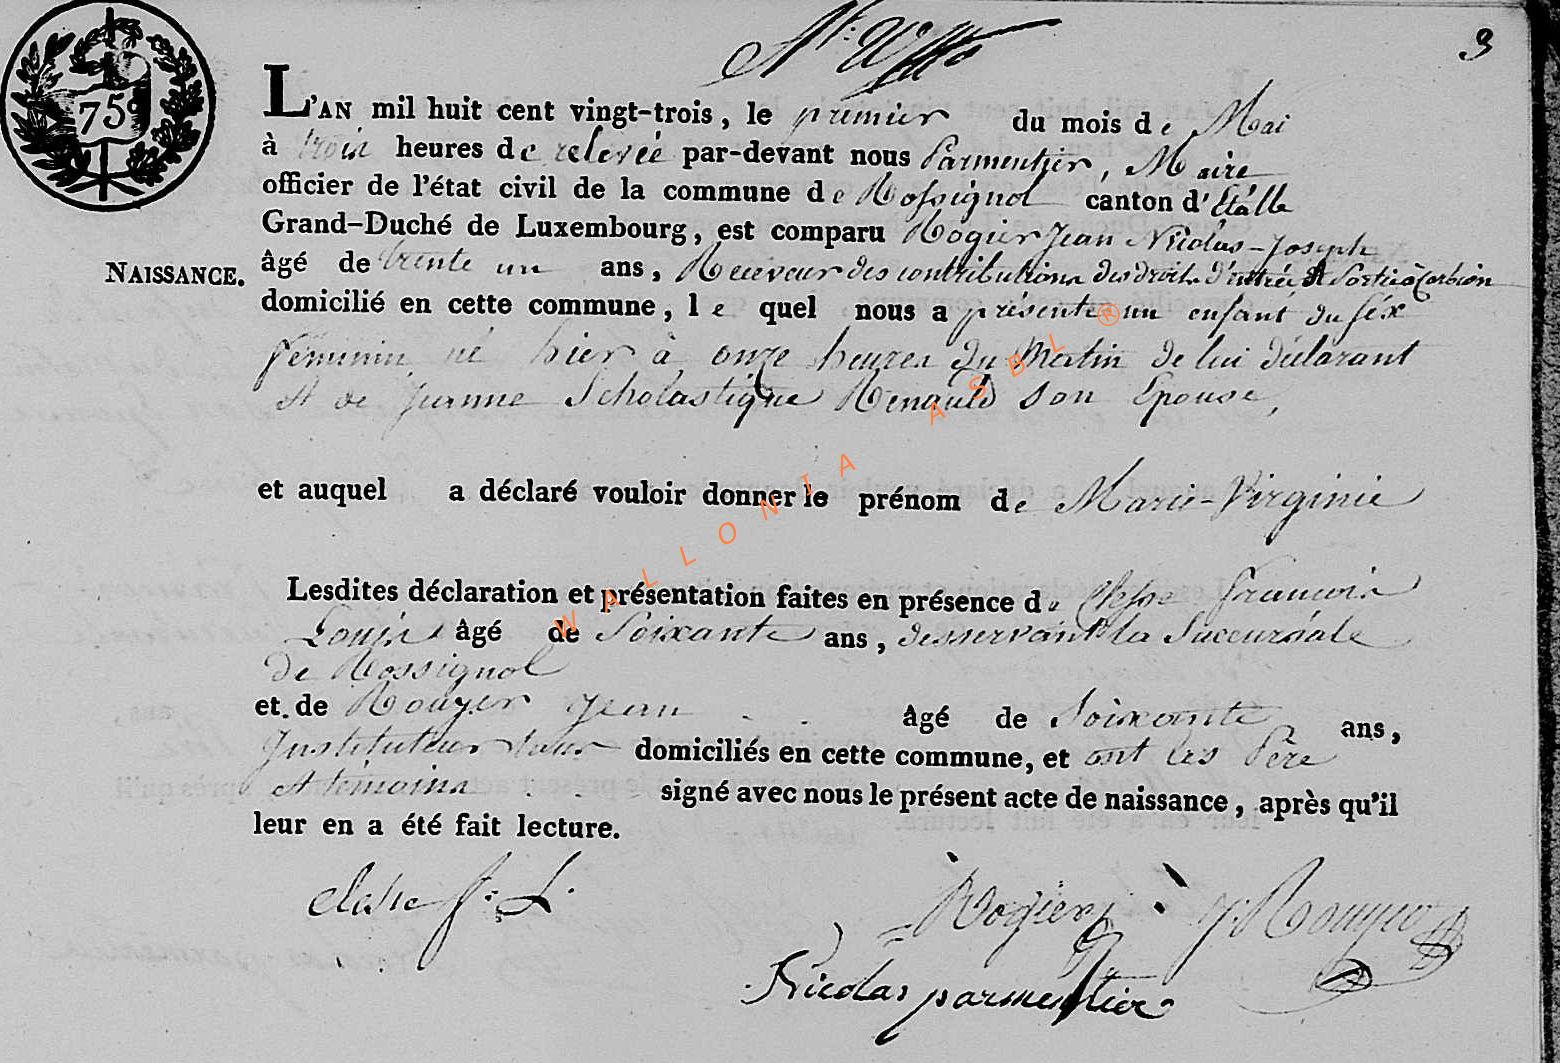 3
75
L'AN mil huit cent vingt-trois, le premier du mois de Mai
à trois heures de relevée par-devant nous Parmentier, Maire
officier de l'état civil de la commune de Rossignol canton d'Etalle
Grand-Duché de Luxembourg, est comparu Rogier Jean Nicolas-Joseph
NAISSANCE.
âgé de trente un ans, Receveur des contributions des droits d'entrée et Sortie à
domicilié en cette commune, le quel nous a présenté un enfant du séx
féminin, né hier à onze heures du Matin de lui déclarant
et de Jeanne Scholastique Renauld son Epouse,
et auquel a déclaré vouloir donner le prénom de Marie-Virginie
Lesdites déclaration et présentation faites en présence de Clesse François
Louis âgé de Soixante ans, desservant la Succursale
de Rossignol
et de Rouyer Jean âgé de Soixante ans,
Instituteur tous domiciliés en cette commune, et ont les Père
et temoins signé avec nous le présent acte de naissance, après qu'il
leur en a été fait lecture.
Clesse f: L.
Rogier J Rouyer
Nicolas parmentier
WALLONIA ASBL ®